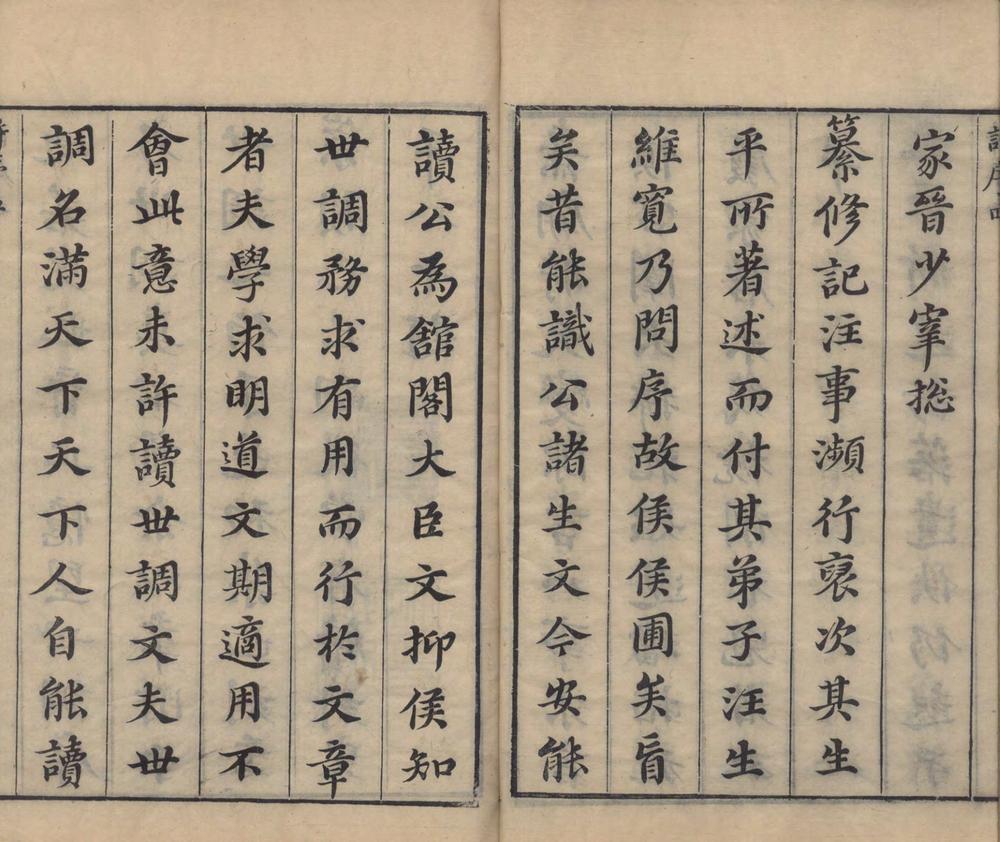 家晉少宰捴
纂修記注事瀕行裒次其生
平所著述而付其弟子汪生
維寬乃問序故侯侯圃矣盲
矣昔能識公諸生文今安能
讀公為舘閣大臣文抑侯知
世調務求有用而行於文章
者夫學求明道文期適用不
會此意未許讀世調文夫世
調名滿天下天下人自能讀